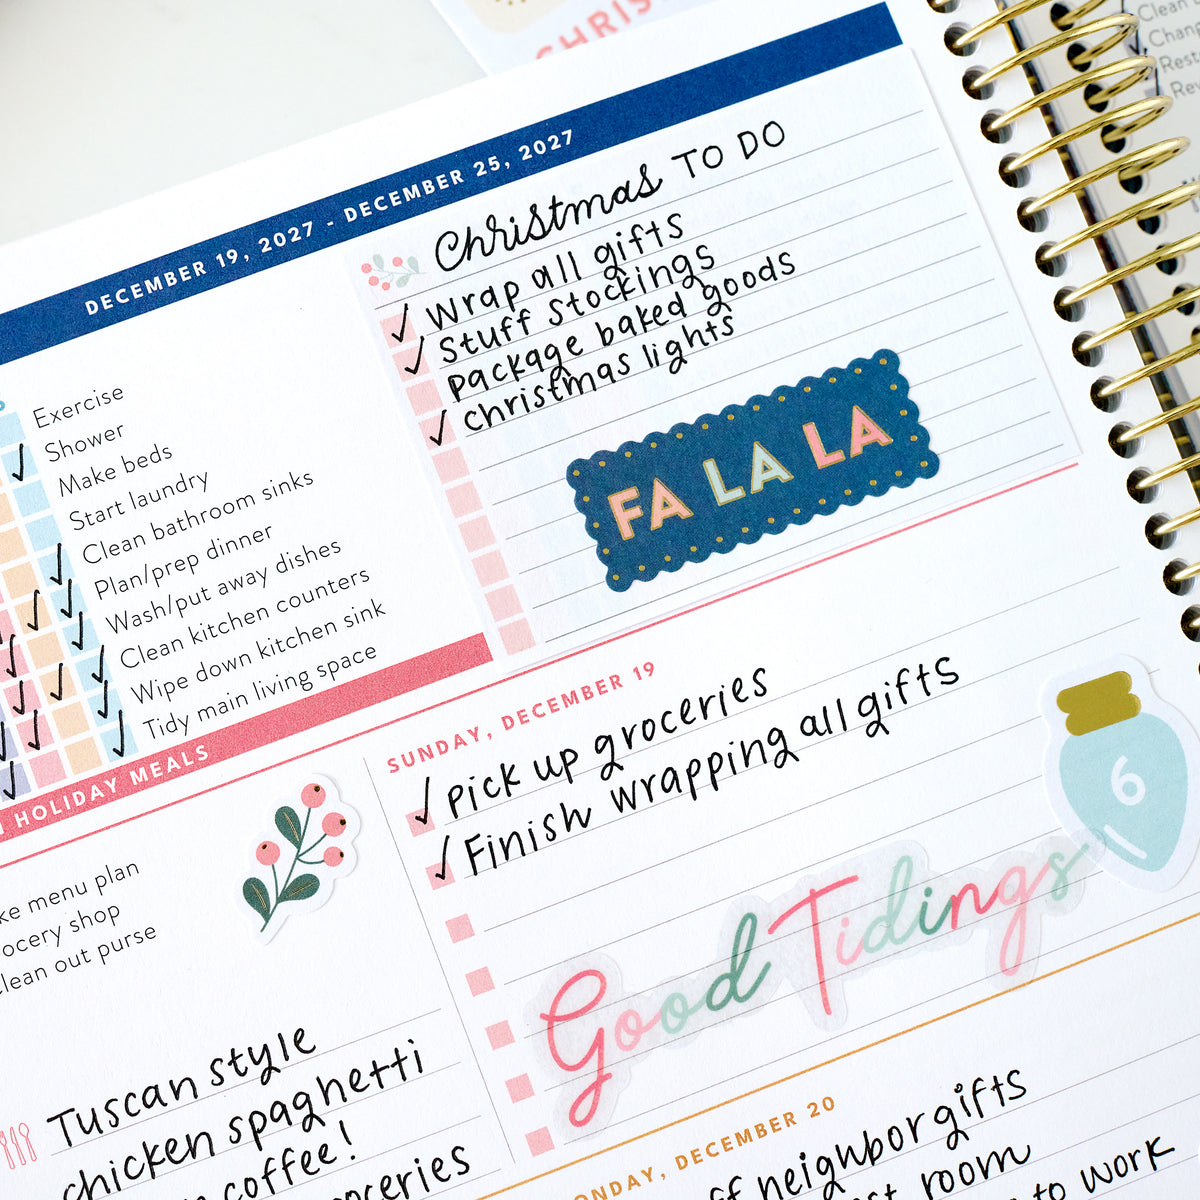 CHRIS
Clean
Chang
Rest
Rev
DECEMBER 19, 2027 - DECEMBER 25, 2027
Christmas TO DO
Wrap all gifts
Stuff Stockings
package baked goods
christmas lights
FA LA LA
Exercise
Shower
Make beds
Start laundry
Clean bathroom sinks
Plan/prep dinner
Wash/put away dishes
Clean kitchen counters
Wipe down kitchen sink
Tidy main living space
HOLIDAY MEALS
ke menu plan
ocery shop
lean out purse
Tuscan style
chicken spaghetti
coffee!
oceries
SUNDAY, DECEMBER 19
pick up groceries
Finish wrapping all gifts
6
Good Tidings
ONDAY, DECEMBER 20
ff neighbor gifts
room
to work